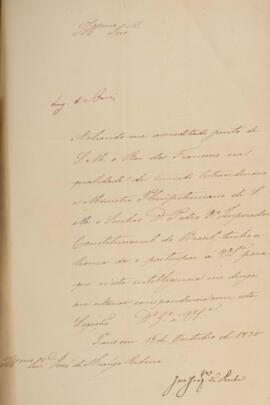 Illmo Snr
Achando-me acreditado junto de
S. M. o Rei dos Francezes na
qualidade de Enviado Extraordinario
e Ministro Plenipotenciario de S.
M. o Senhor D. Pedro 2º Imperador
Constitucional do Brasil, tenho a
honra de o participar a V.S. para
que n'esta intelligencia se dirija
me ulterior correspondencia com esta
Legação. Ds. ge. a V.S.
Paris em 18 de Outubro de 183
Illmo Snr José de Araujo Ribeiro
José Joaqm da Rocha